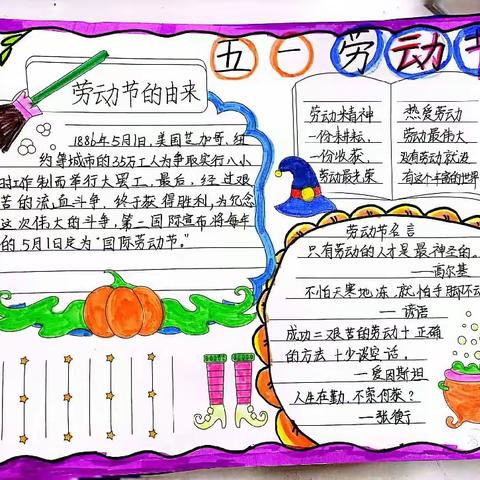 五一劳动节
劳动节的由来
1886年5月1日,美国芝加哥,纽
约等城市的35万工人为争取实行八小
时工作制而举行大罢工,最后,经过艰
苦的流血斗争,终于获得胜利,为纪念
这次伟大的斗争,第一国际宣布将每年
的5月1日定为“国际劳动节。”
劳动精神
一份耕耘,
一份收获,
劳动最光荣
热爱劳动
劳动最伟大
没有劳动就没
有这个丰富的世界
劳动节名言
只有劳动的人才是最神圣的。
——高尔基
不怕天寒地冻,就怕手脚不动
——谚语
成功=艰苦的劳动+正确
的方法+少谈空话,
——爱因斯坦
人生在勤,不索何获?
——张衡